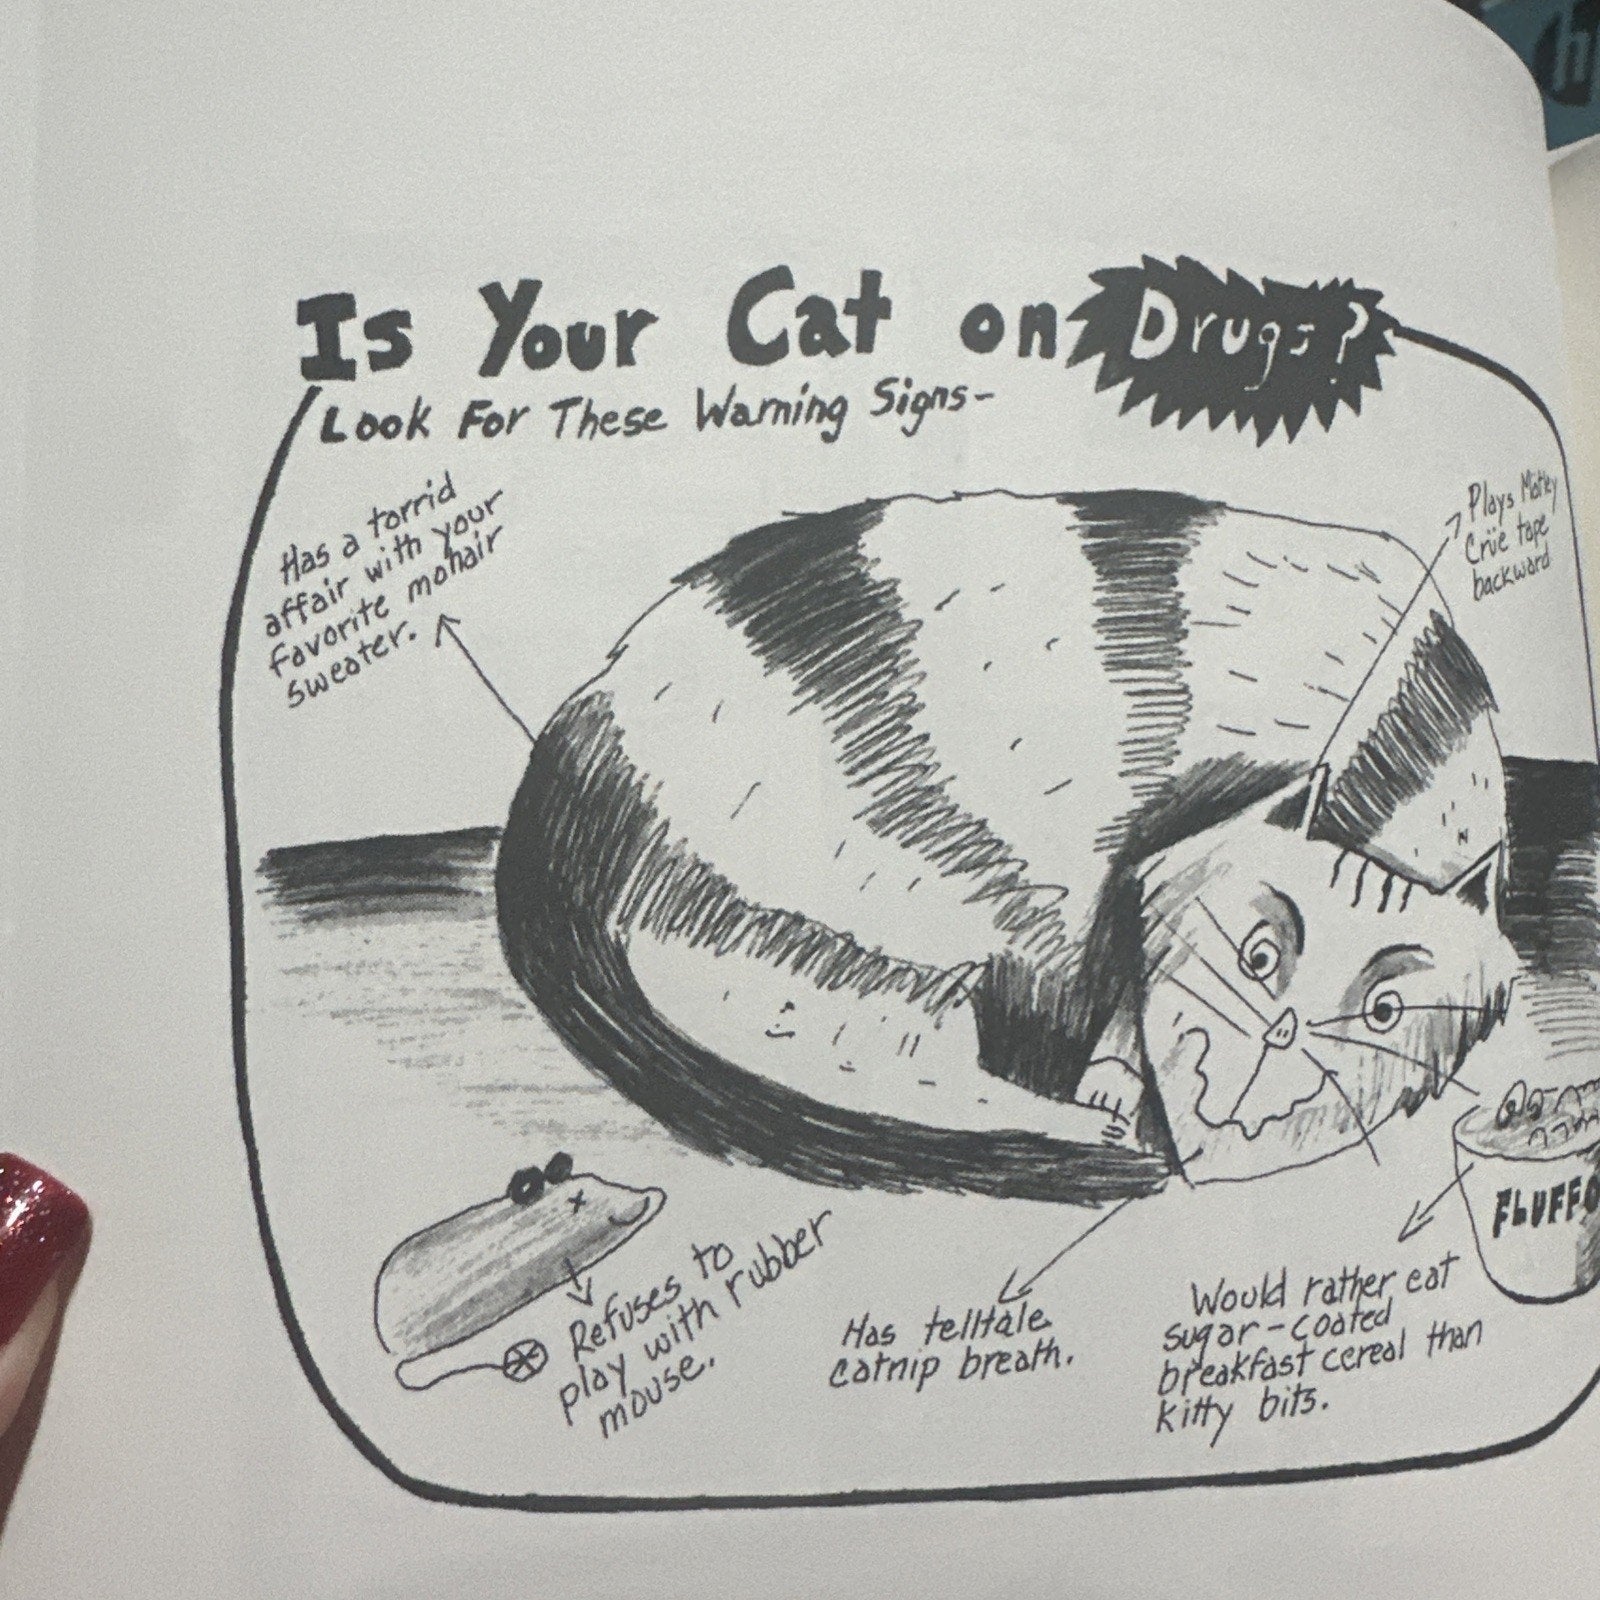 Is Your Cat on Drugs?
Look For These Warning Signs-
Has a torrid
affair with your
favorite mohair
sweater.
Plays Mötley
Crüe tape
backward
Refuses to
play with rubber
mouse.
Has telltale
catnip breath.
Would rather eat
sugar-coated
breakfast cereal than
kitty bits.
FLUFFO
h